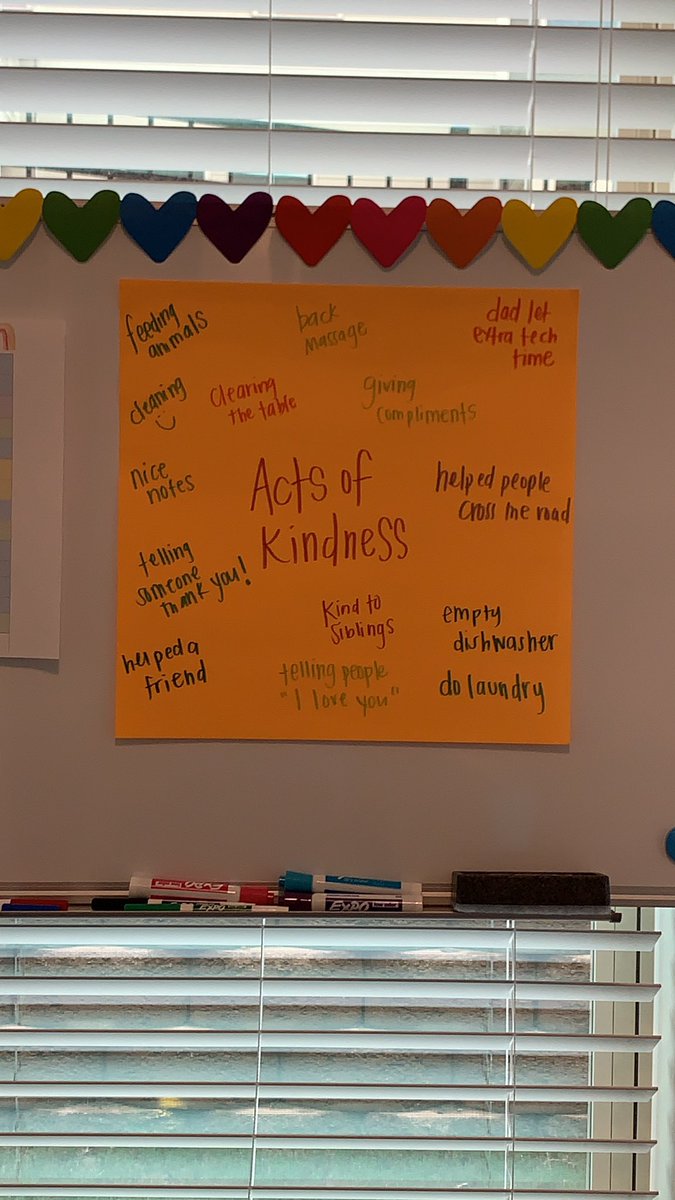 feeding
animals
back
massage
dad let
extra tech
time
cleaning
clearing
the table
giving
compliments
nice
notes
Acts of
kindness
helped people
cross the road
telling
someone
thank you!
kind to
siblings
empty
dishwasher
helped a
friend
telling people
"I love you"
do laundry
EXPO
EXPO